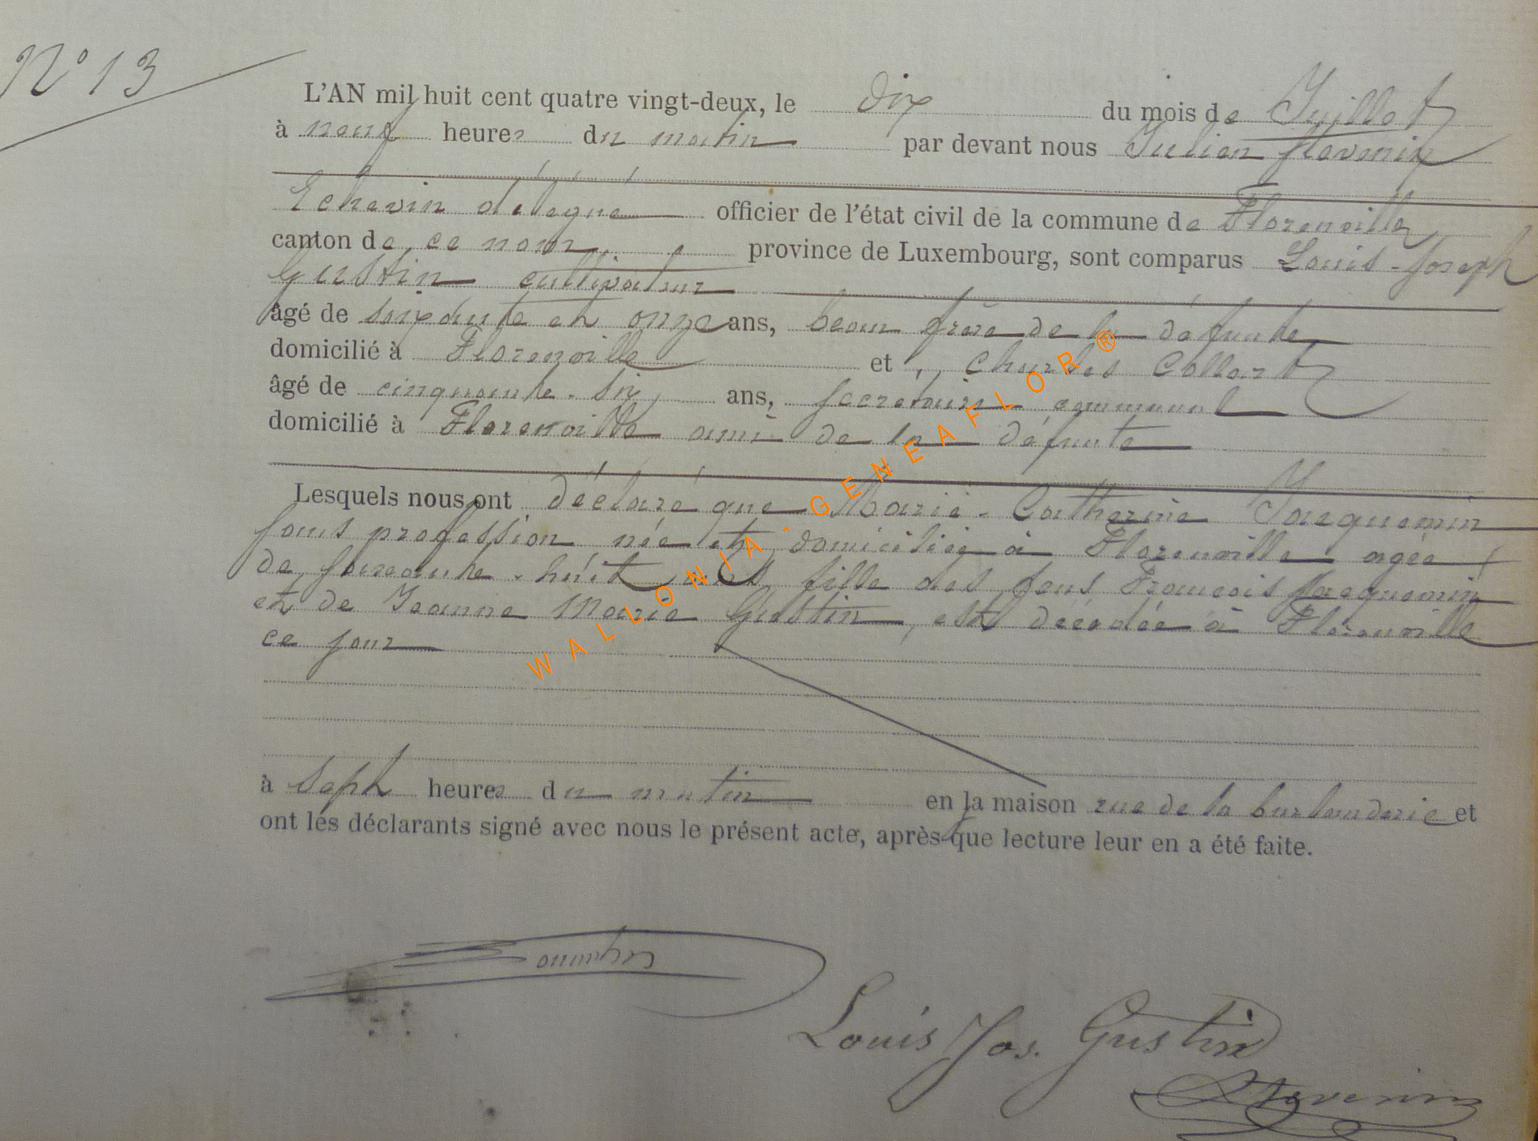 N° 13
L'AN mil huit cent quatre vingt-deux, le dix du mois de Juillet
à neuf heures du matin par devant nous Julien Stevenin
Echevin délégué officier de l'état civil de la commune de Florenville
canton de ce nom, province de Luxembourg, sont comparus Louis-Joseph
Gustin cultivateur
âgé de soixante et onze ans, beau frère de la défunte
domicilié à Florenville et Charles Collart
âgé de cinquante-six ans, secrétaire communal
domicilié à Florenville ami de la défunte
Lesquels nous ont déclaré que Marie-Catherine Jacquemin
sans profession née et domiciliée à Florenville agée
de soixante-huit ans fille des feus François Jacquemin
et de Jeanne Marie Gustin, est décédée à Florenville
ce jour
à sept heures du matin en la maison rue de la et
ont les déclarants signé avec nous le présent acte, après que lecture leur en a été faite.
Louis Jos. Gustin
Stevenin
WALLONIA-GENEAFLOR®